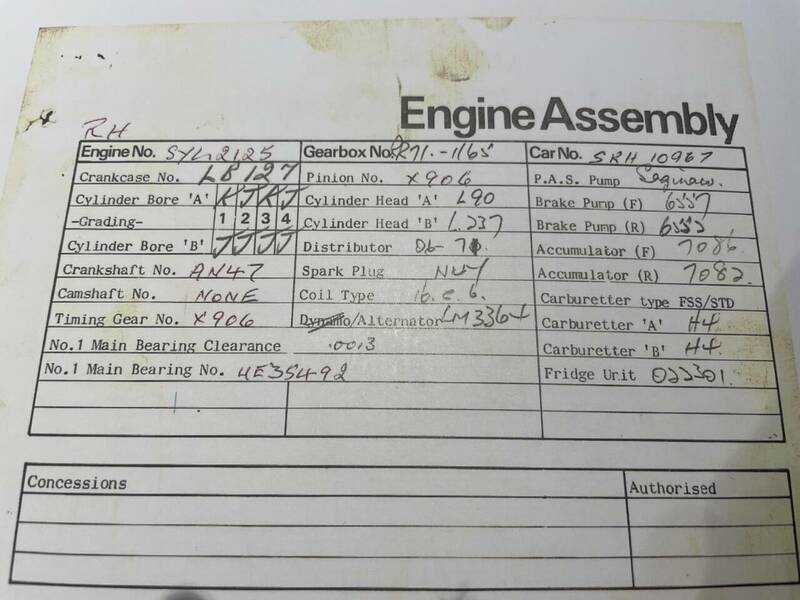 Engine Assembly
RH
Engine No. SYL 2125 Gearbox No. 1165 Car No. SRH 10967
Crankcase No. LB 127 Pinion No. X906 P.A.S. Pump Saginaw.
Cylinder Bore 'A' K J K J Cylinder Head 'A' L90 Brake Pump (F) 6557
-Grading- 1 2 3 4 Cylinder Head 'B' L.237 Brake Pump (R)
Cylinder Bore 'B' J J J J Distributor Accumulator (F) 7086
Crankshaft No. AN47 Spark Plug Accumulator (R) 7082
Camshaft No. NONE Coil Type 16.c.6. Carburetter type FSS/STD
Timing Gear No. X906 Dynamo/Alternator Carburetter 'A' H4
No.1 Main Bearing Clearance .0013 Carburetter 'B' H4.
No.1 Main Bearing No. UE35492 Fridge Unit 022301.
Concessions Authorised